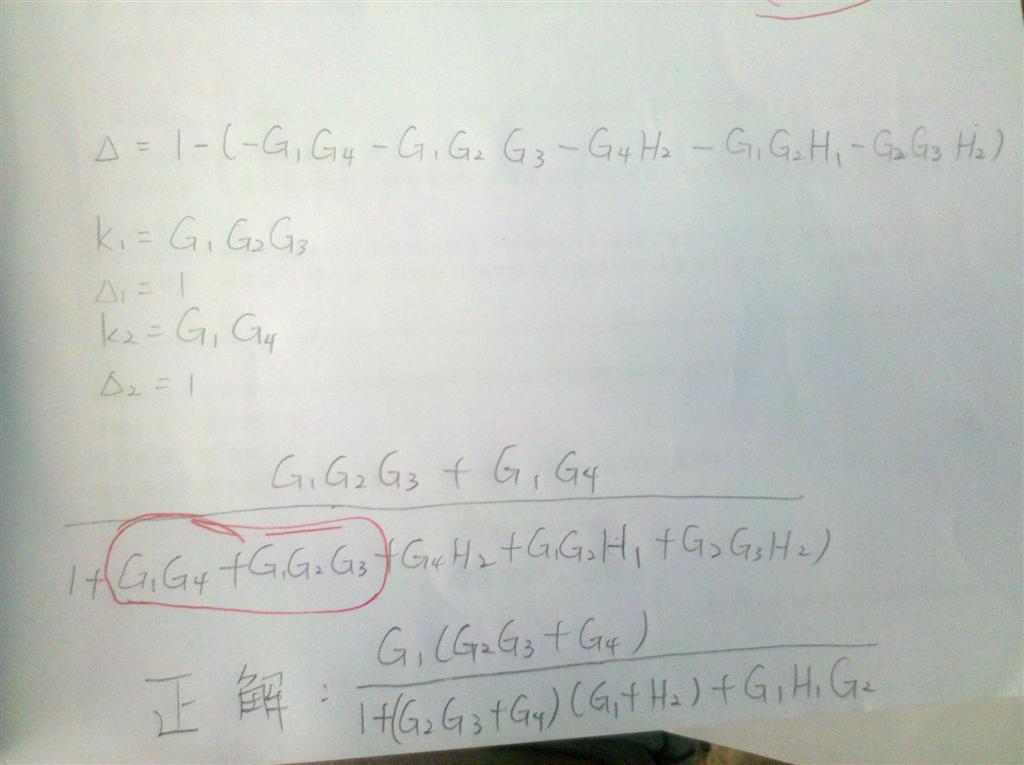 Δ = 1-(-G₁G₄ -G₁G₂ G₃ -G₄H₂ -G₁G₂H₁-G₂G₃H₂)
k₁= G₁G₂G₃
Δ₁ = 1
k₂= G₁G₄
Δ₂ = 1
G₁G₂G₃ + G₁G₄
1+G₁G₄+G₁G₂G₃+G₄H₂+G₁G₂H₁+G₂G₃H₂)
G₁(G₂G₃+G₄)
正解: 1+(G₂G₃+G₄)(G₁+H₂)+G₁H₁G₂